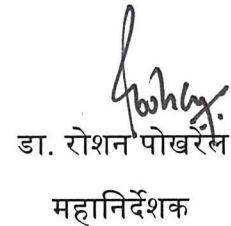 डा. रोशन पोखरेल
महानिर्देशक